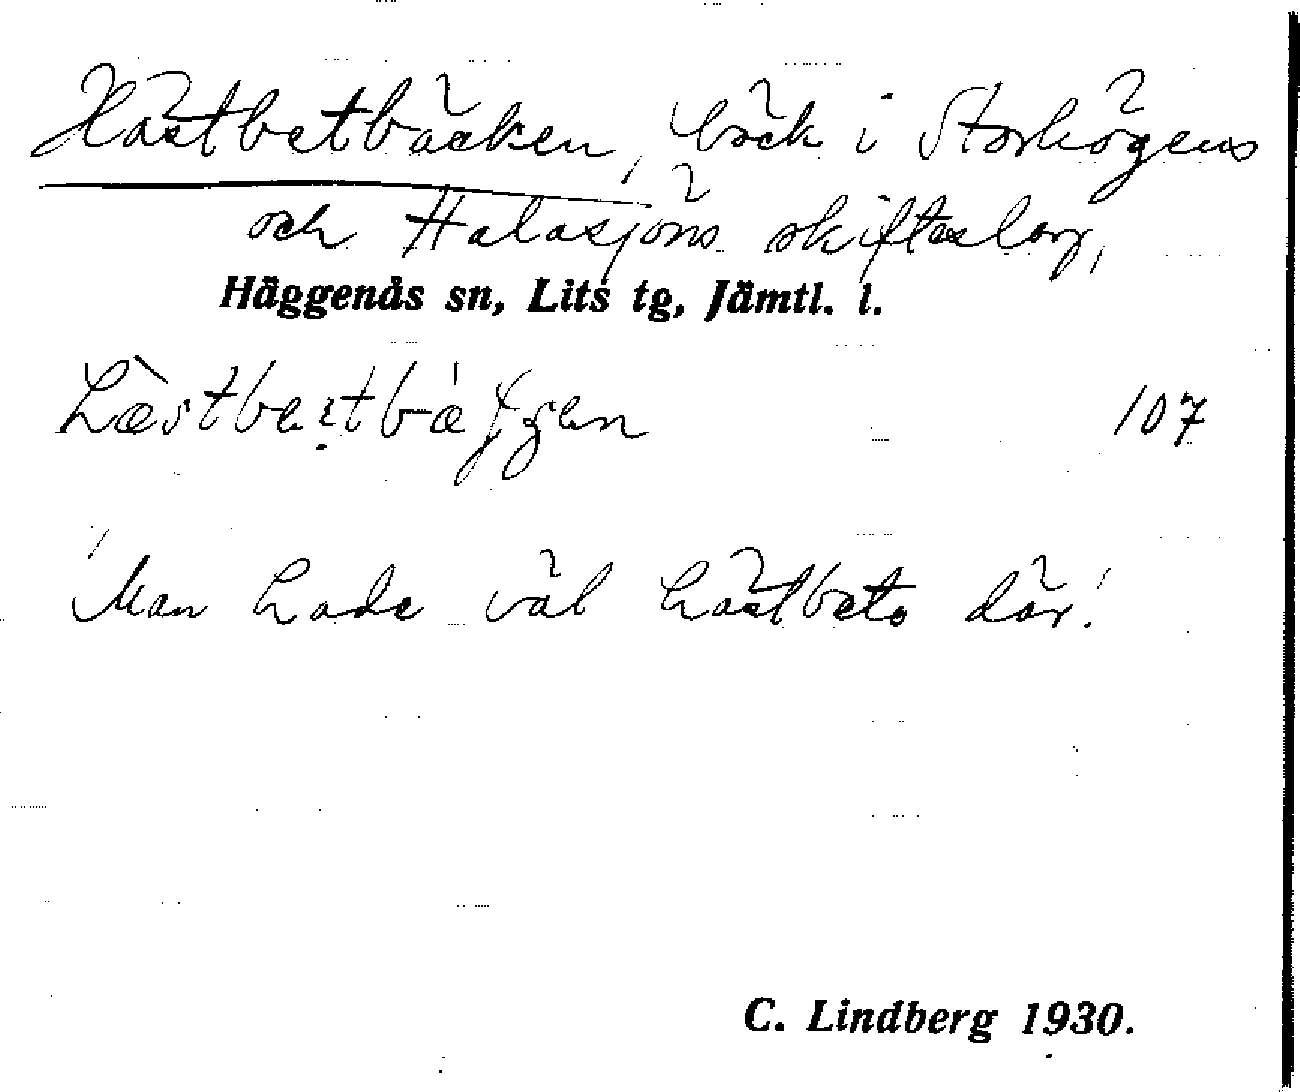 Hästbetbäcken, bäck i Storhögens
och Halasjöns skifteslag,
Häggenås sn, Lits tg, Jämtl. l.
107
'Man hade väl hästbete där!'
C. Lindberg 1930.